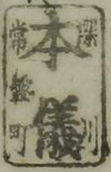 深川
本儀
常盤町